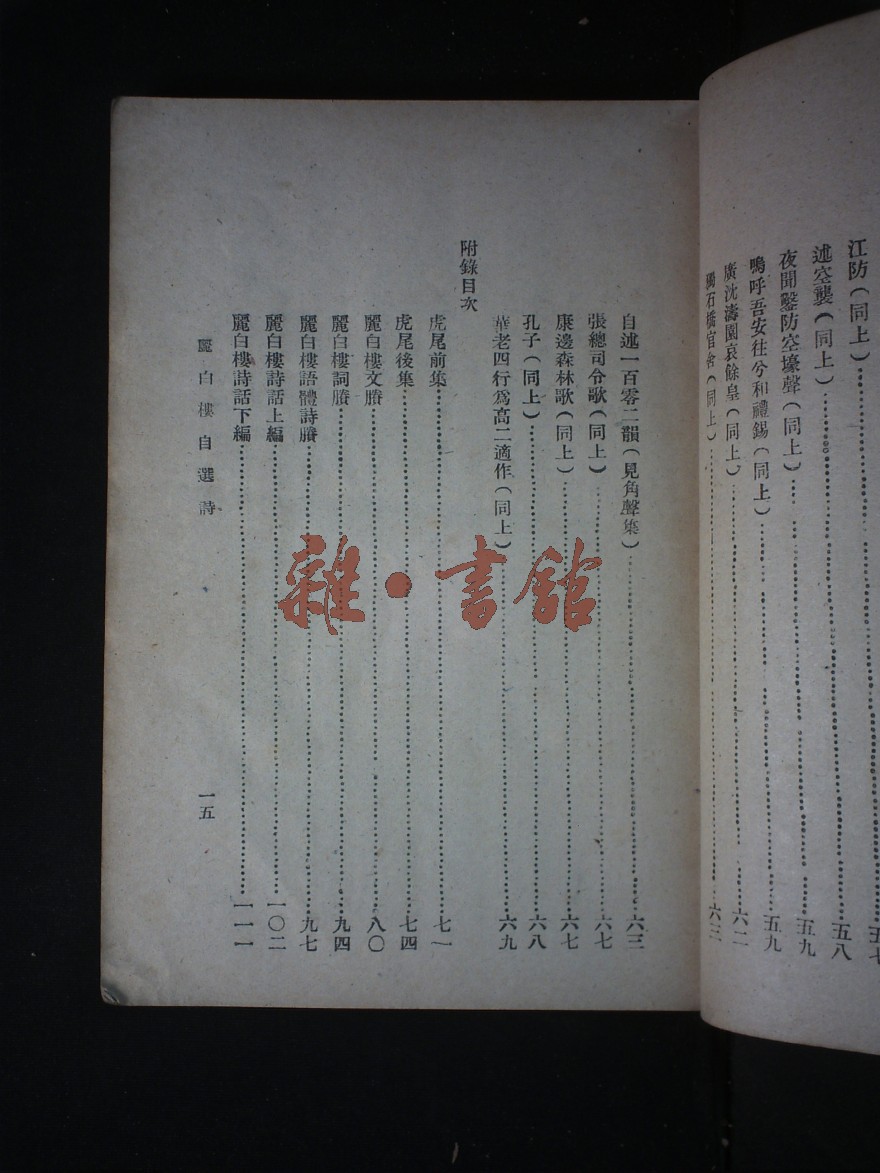 江防(同上)
述空襲(同上)五八
夜聞鑿防空壕聲(同上)五九
嗚呼吾安往兮和禮錫(同上)五九
廣沈濤園哀餘皇(同上)六二
獨石橋官舍(同上)六三
自述一百零二韻(見角聲集)六三
張總司令歌(同上)六七
康邊森林歌(同上)六七
孔子(同上)六八
華老四行爲高二適作(同上)六九
附錄目次
虎尾前集七一
虎尾後集七四
麗白樓文賸八〇
麗白樓詞賸九四
麗白樓語體詩賸九七
麗白樓詩話上編一〇二
麗白樓詩話下編一一一
麗白樓自選詩
一五
雜·書館